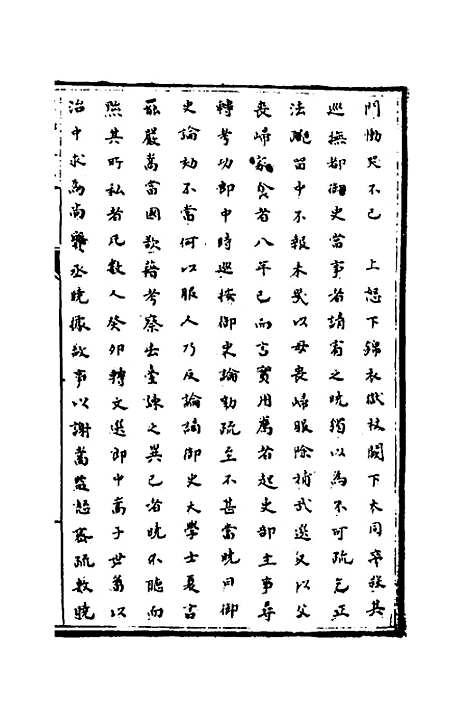 門慟哭不已　上怒下錦衣獄杖闕下大同卒殺其
巡撫都御史當事者請宥之曉獨以為不可疏乞正
法疏留中不報未幾以母喪歸服除補武選又以父
喪歸家食者八年已而言實用薦者起吏部主事尋
轉考功郎中時巡按御史論劾疏至不甚當曉曰御
史論劾不當何以服人乃反論謫御史大學士夏言
罷嚴嵩當國欲藉考察出臺諫之異己者曉不聽而
黜其所私者凡數人癸卯轉文選郎中嵩子世蕃以
治中求為尚寶丞曉據故事以謝嵩益怒密疏數曉